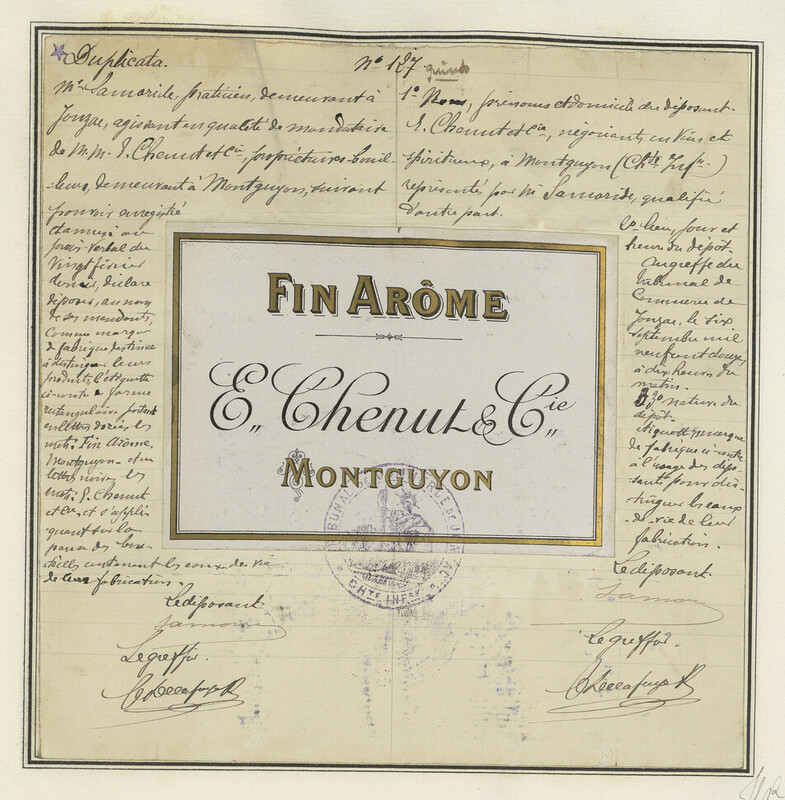 Duplicata.
Nº 127
Mr Samoride, praticien, demeurant à
Jonzac, agissant en qualité de mandataire
de M.M. E. Chenut et Cie, propriétaires-bouil-
leurs, demeurant à Montguyon, suivant
pouvoir enregistré
et annexé au
procès-verbal du
vingt février
dernier, déclare
déposer, au nom
de ses mandants,
comme marque
de fabrique destinée
à distinguer leurs
produits, l'étiquette
ci-contre de forme
rectangulaire portant
en lettres dorées les
mots: Fin Arôme,
Montguyon et en
lettres noires les
mots: E. Chenut
et Cie et s'appli-
quant sur la
panse des bou-
teilles contenant les eaux-de-vie
de leur fabrication.
Le déposant
Le greffier.
1º Nom, prénoms et domicile du déposant.
E. Chenut et Cie, négociants en vins et
spiritueux, à Montguyon (Chte Infre)
représentés par Mr Samoride, qualifié
d'autre part.
2º lieu, jour et
heure du dépôt.
Au greffe du
tribunal de
Commerce de
Jonzac, le six
septembre mil
neuf cent douze,
à dix heures du
matin.
3º nature du
dépôt.
Etiquette marque
de fabrique ci-contre
à l'usage des dépo-
sants pour dis-
tinguer les eaux
-de-vie de leur
fabrication.
Le déposant
Le greffier.
FIN ARÔME
E. Chenut & Cie
MONTGUYON
TRIBUNAL DE COMMERCE DE JONZAC
CHTE INFRE